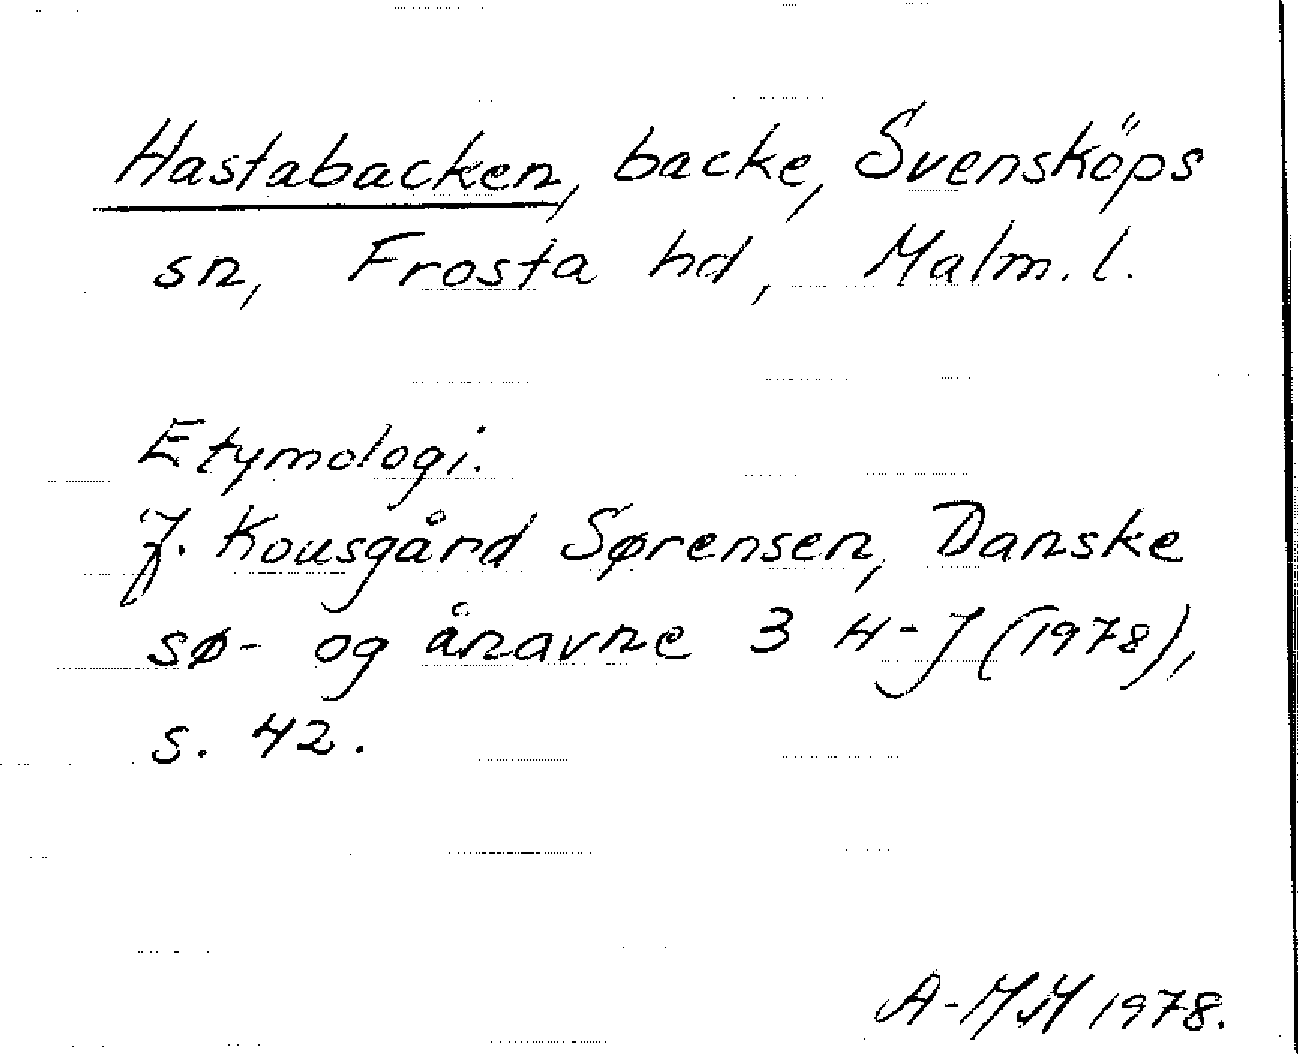 Hastabacken, backe, Svensköps
sn, Frosta hd, Malm. l.
Etymologi.
J. Kousgård Sørensen, Danske
sø- og ånavne 3 H-J (1978),
s. 42.
A-MM 1978.